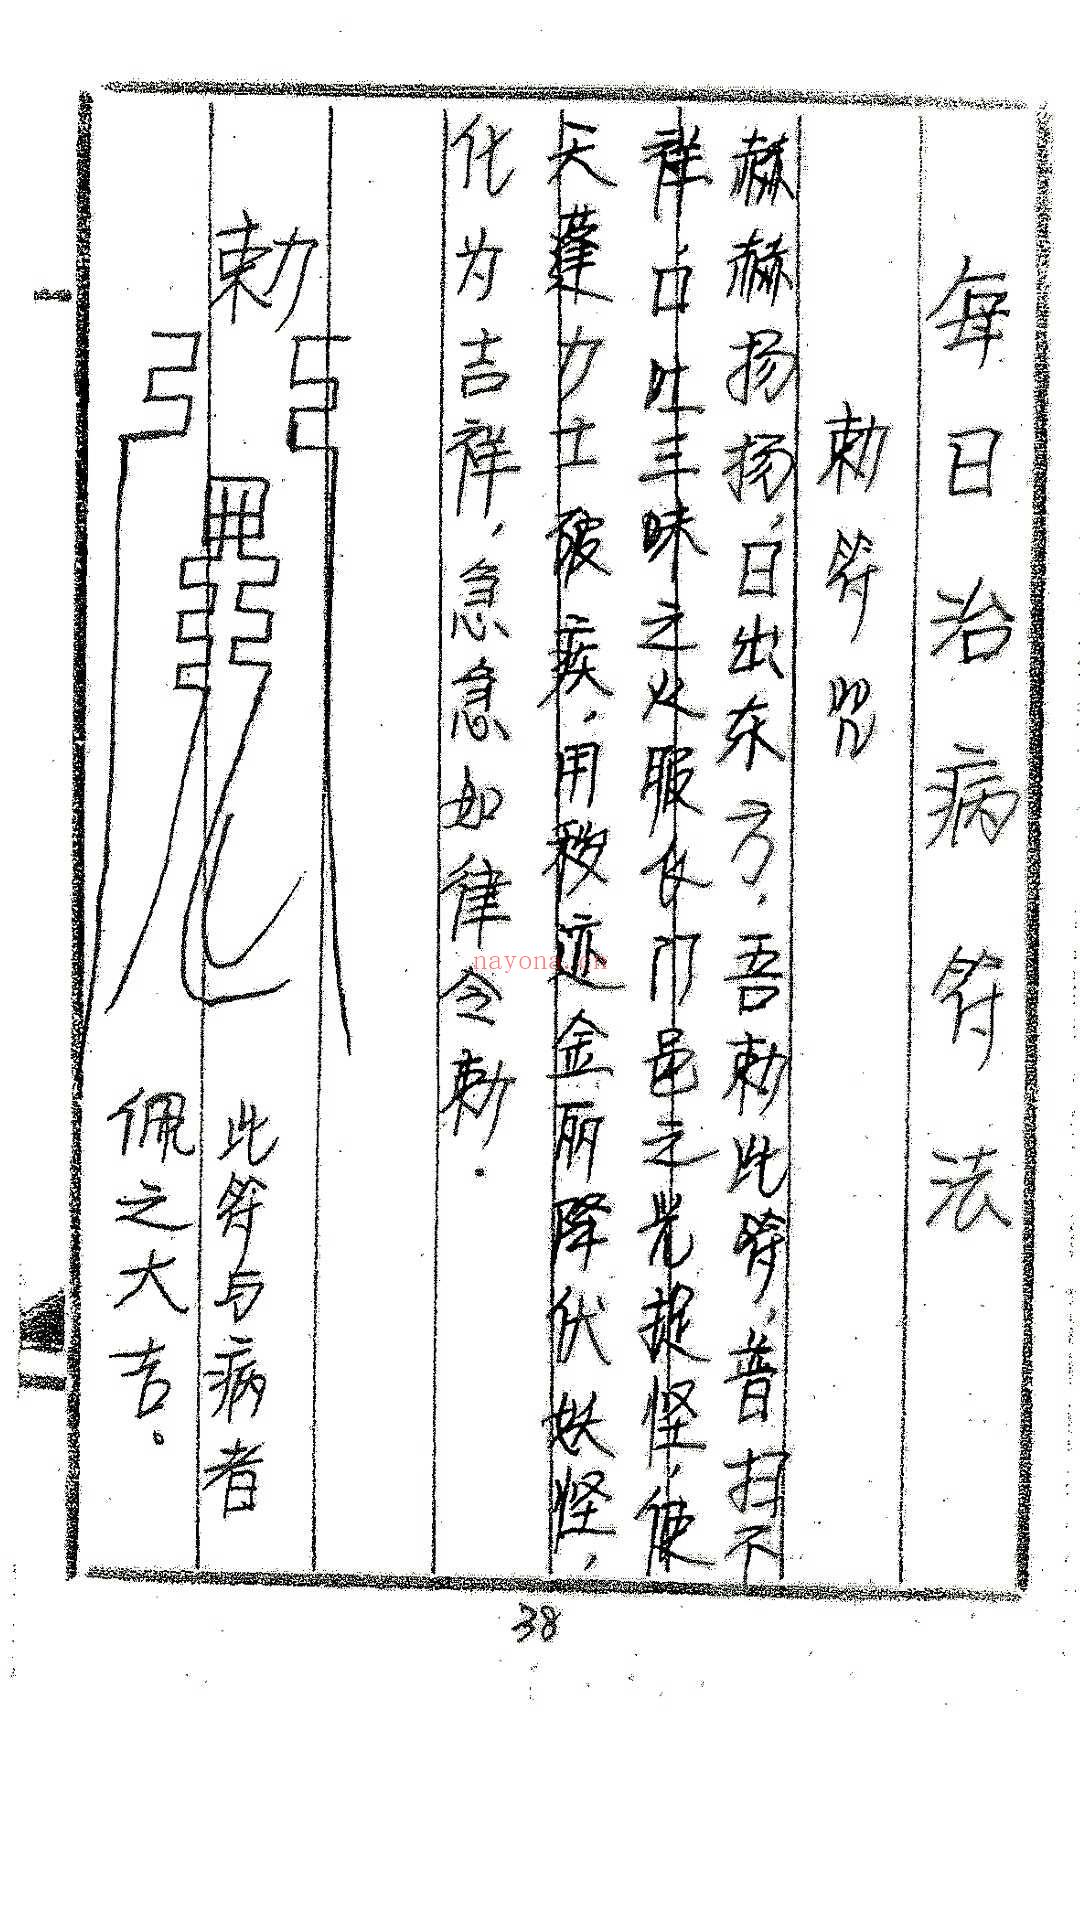 每日治病符法
勅符咒
赫赫扬扬，日出东方，吾勅此符，普扫不
祥，口吐三昧之火，服飞门邑之光，捉怪，使
天蓬力士破疾，用秽迹金刚降伏妖怪，
化为吉祥，急急如律令勅。
勅
此符与病者
佩之大吉。
nayona.cn
38